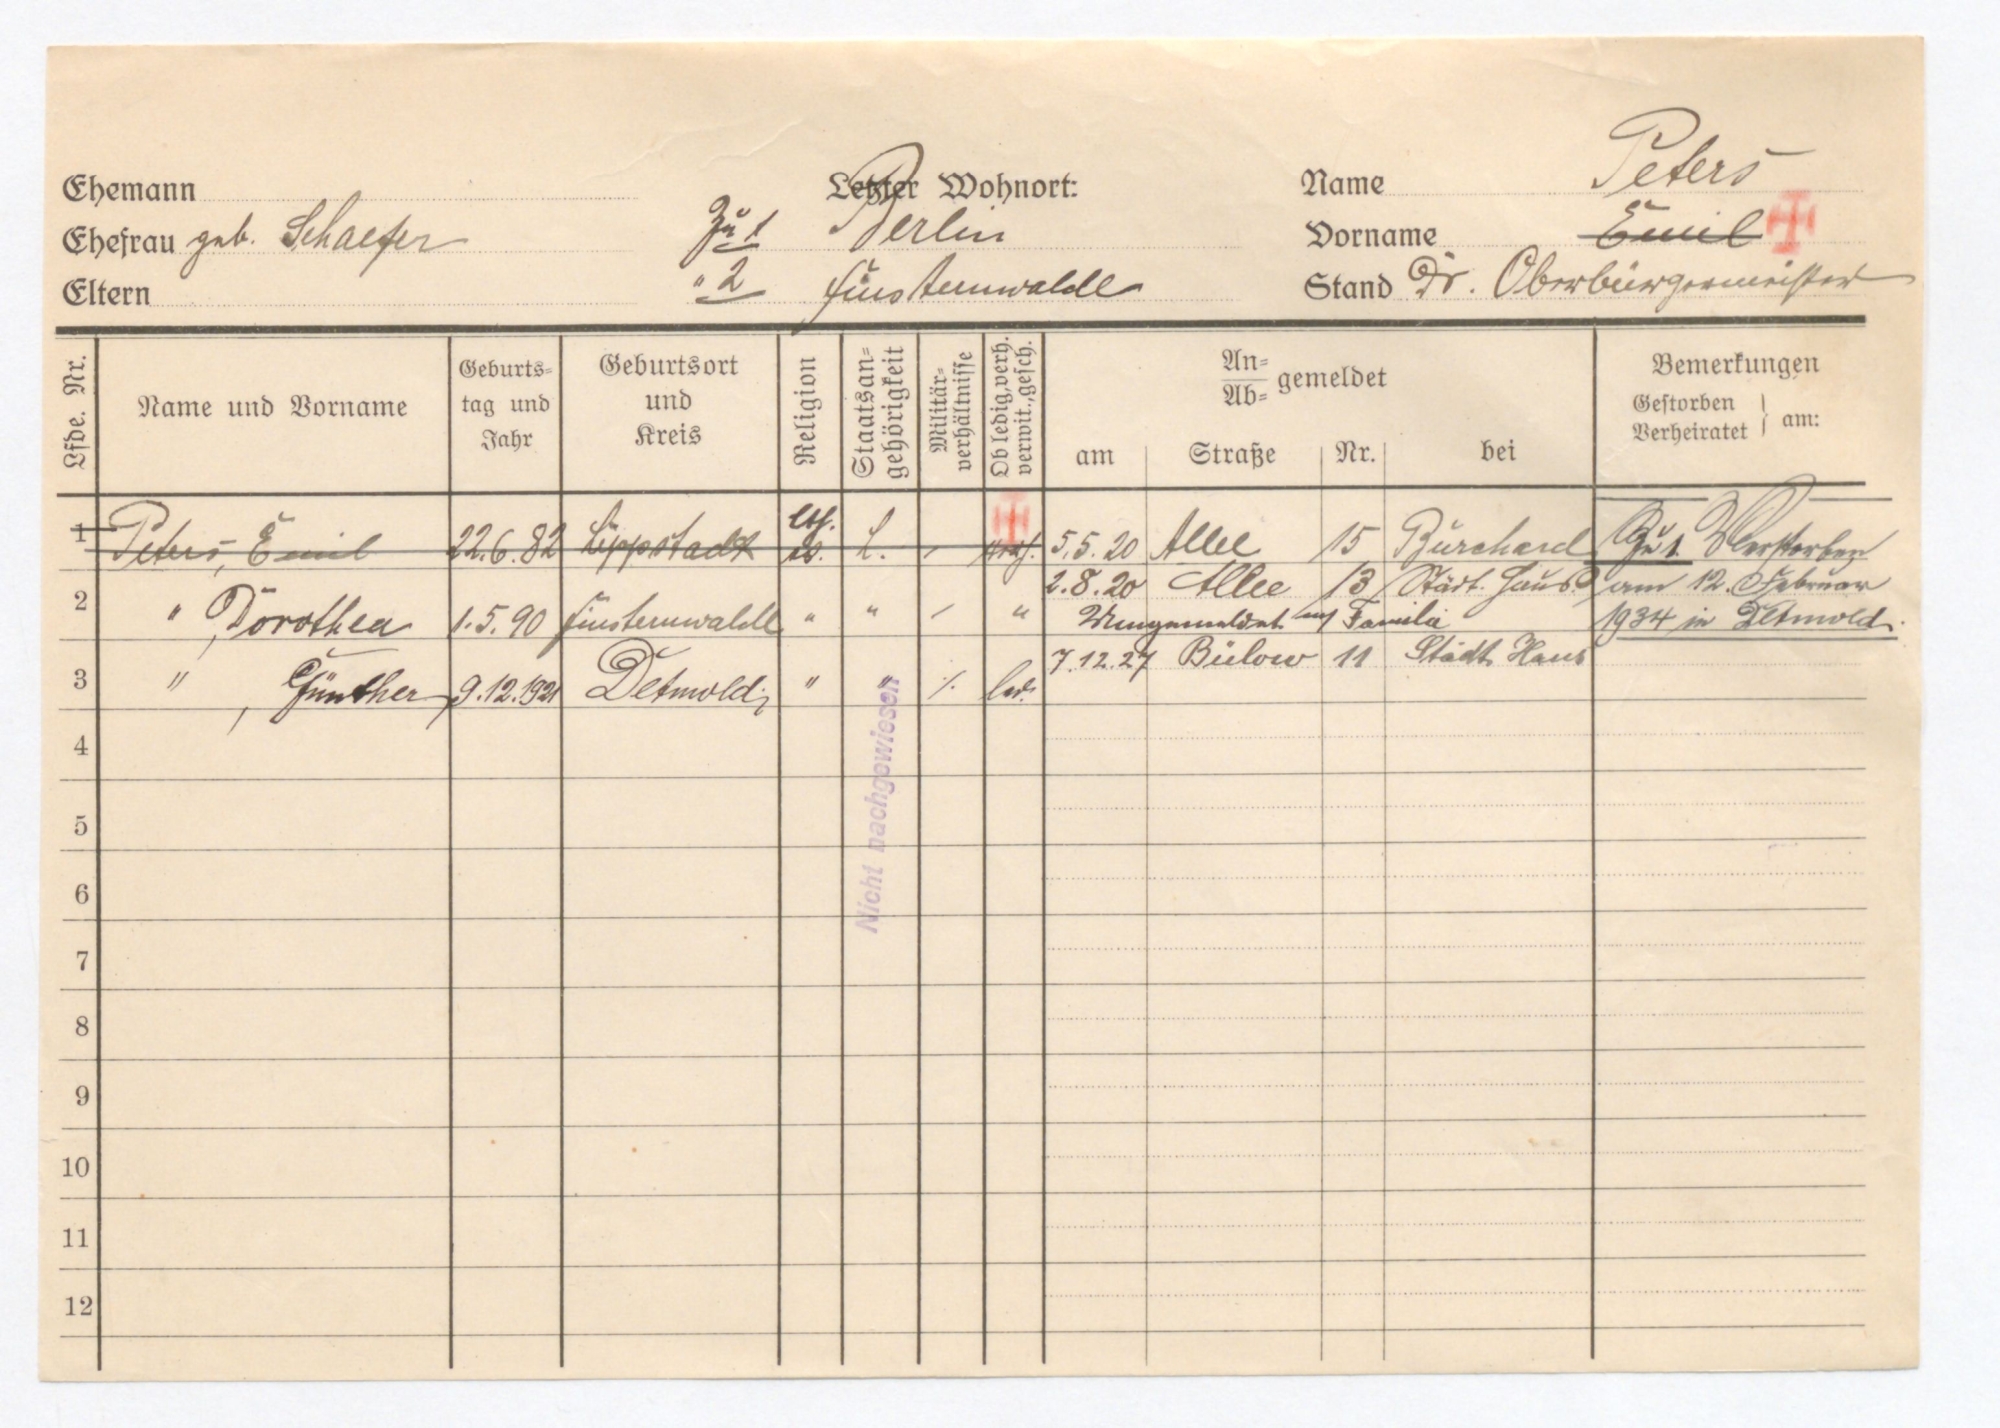 Ehemann
Ehefrau geb. Schaefer
Eltern
Letzter Wohnort:
Zu 1 Berlin
" 2 Finsterwalde
Name Peters
Vorname Emil
Stand Dr. Oberbürgermeister
Lfde. Nr.
Name und Vorname
Geburts-
tag und
Jahr
Geburtsort
und
Kreis
Religion
Staatsan-
gehörigkeit
Militär-
verhältnisse
Ob ledig, verh.
verwit., gesch.
An-
Ab- gemeldet
am Straße Nr. bei
Bemerkungen
Gestorben
Verheiratet } am:
1 Peters, Emil 22.6.82 Lippstadt L. 5.5.20 Allee 15 Burchard Zu 1. Verstorben
2.8.20 Allee 13 Städt. Haus am 12. Februar
2 " Dorothea 1.5.90 Finsterwalde " " " Umgemeldet mit Familie 1934 in Detmold.
7.12.27 Bülow 11 Städt. Haus
3 " Günther 9.12.1921 Detmold " " led.
Nicht nachgewiesen
4
5
6
7
8
9
10
11
12